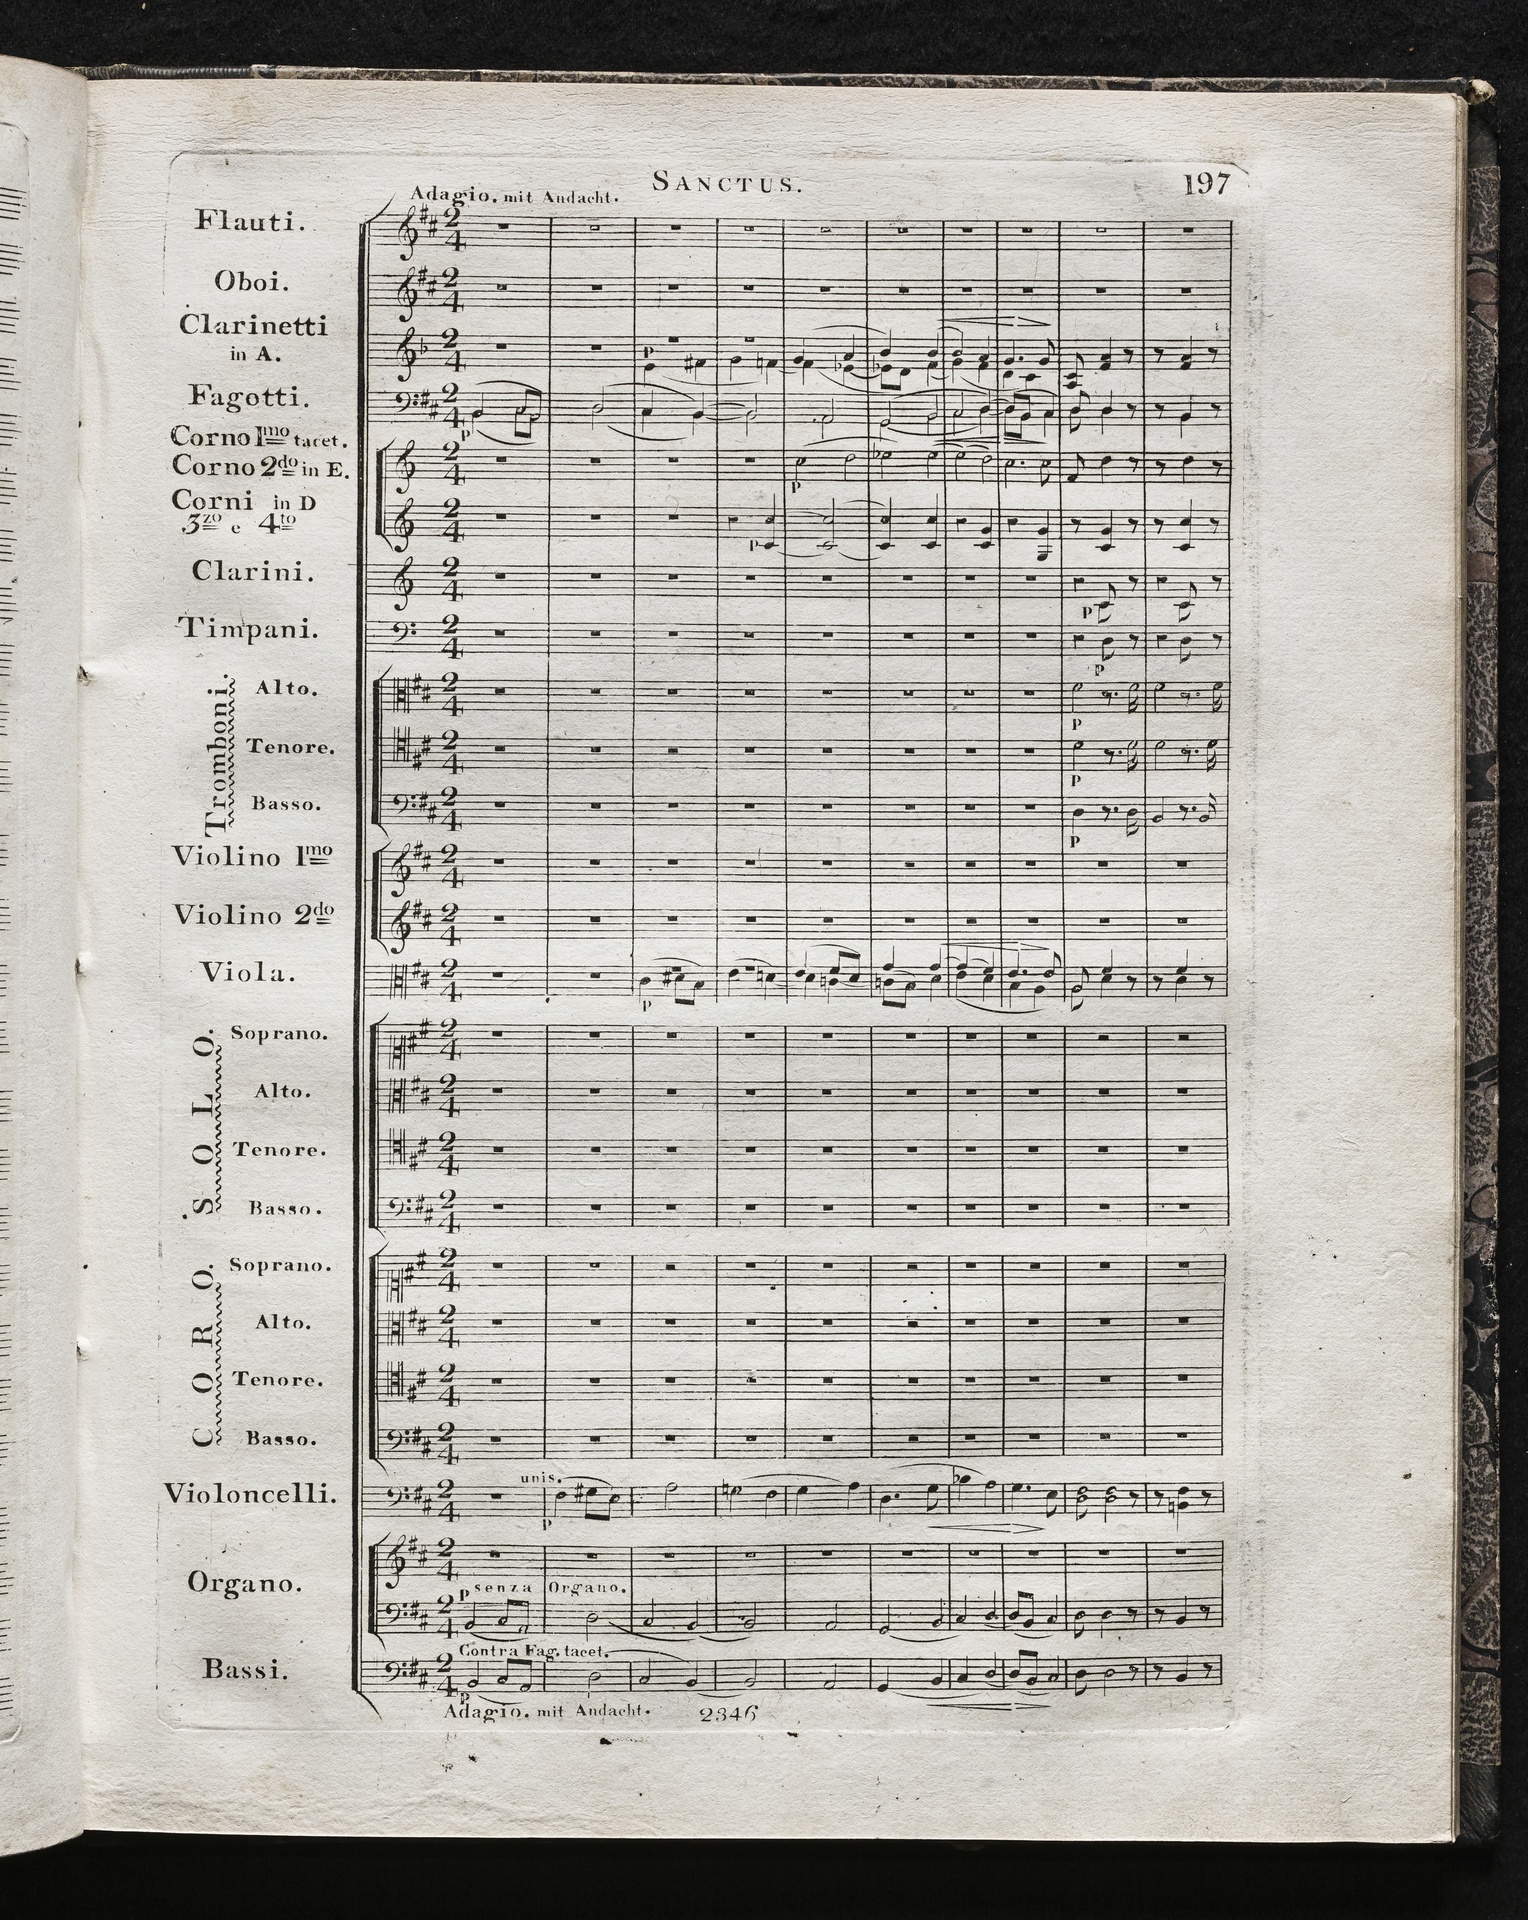 SANCTUS.
197
Adagio. mit Andacht.
Flauti.
Oboi.
Clarinetti
in A.
Fagotti.
P
Corno 1mo tacet.
Corno 2do in E.
P
Corni in D
3zo e 4to
P
Clarini.
P
Timpani.
P
Tromboni.
Alto.
P
Tenore.
P
Basso.
P
Violino 1mo
Violino 2do
Viola.
P
SOLO.
Soprano.
Alto.
Tenore.
Basso.
CORO.
Soprano.
Alto.
Tenore.
Basso.
unis.
Violoncelli.
P
Organo.
P senza Organo.
Contra Fag. tacet.
Bassi.
P
Adagio. mit Andacht.
2346